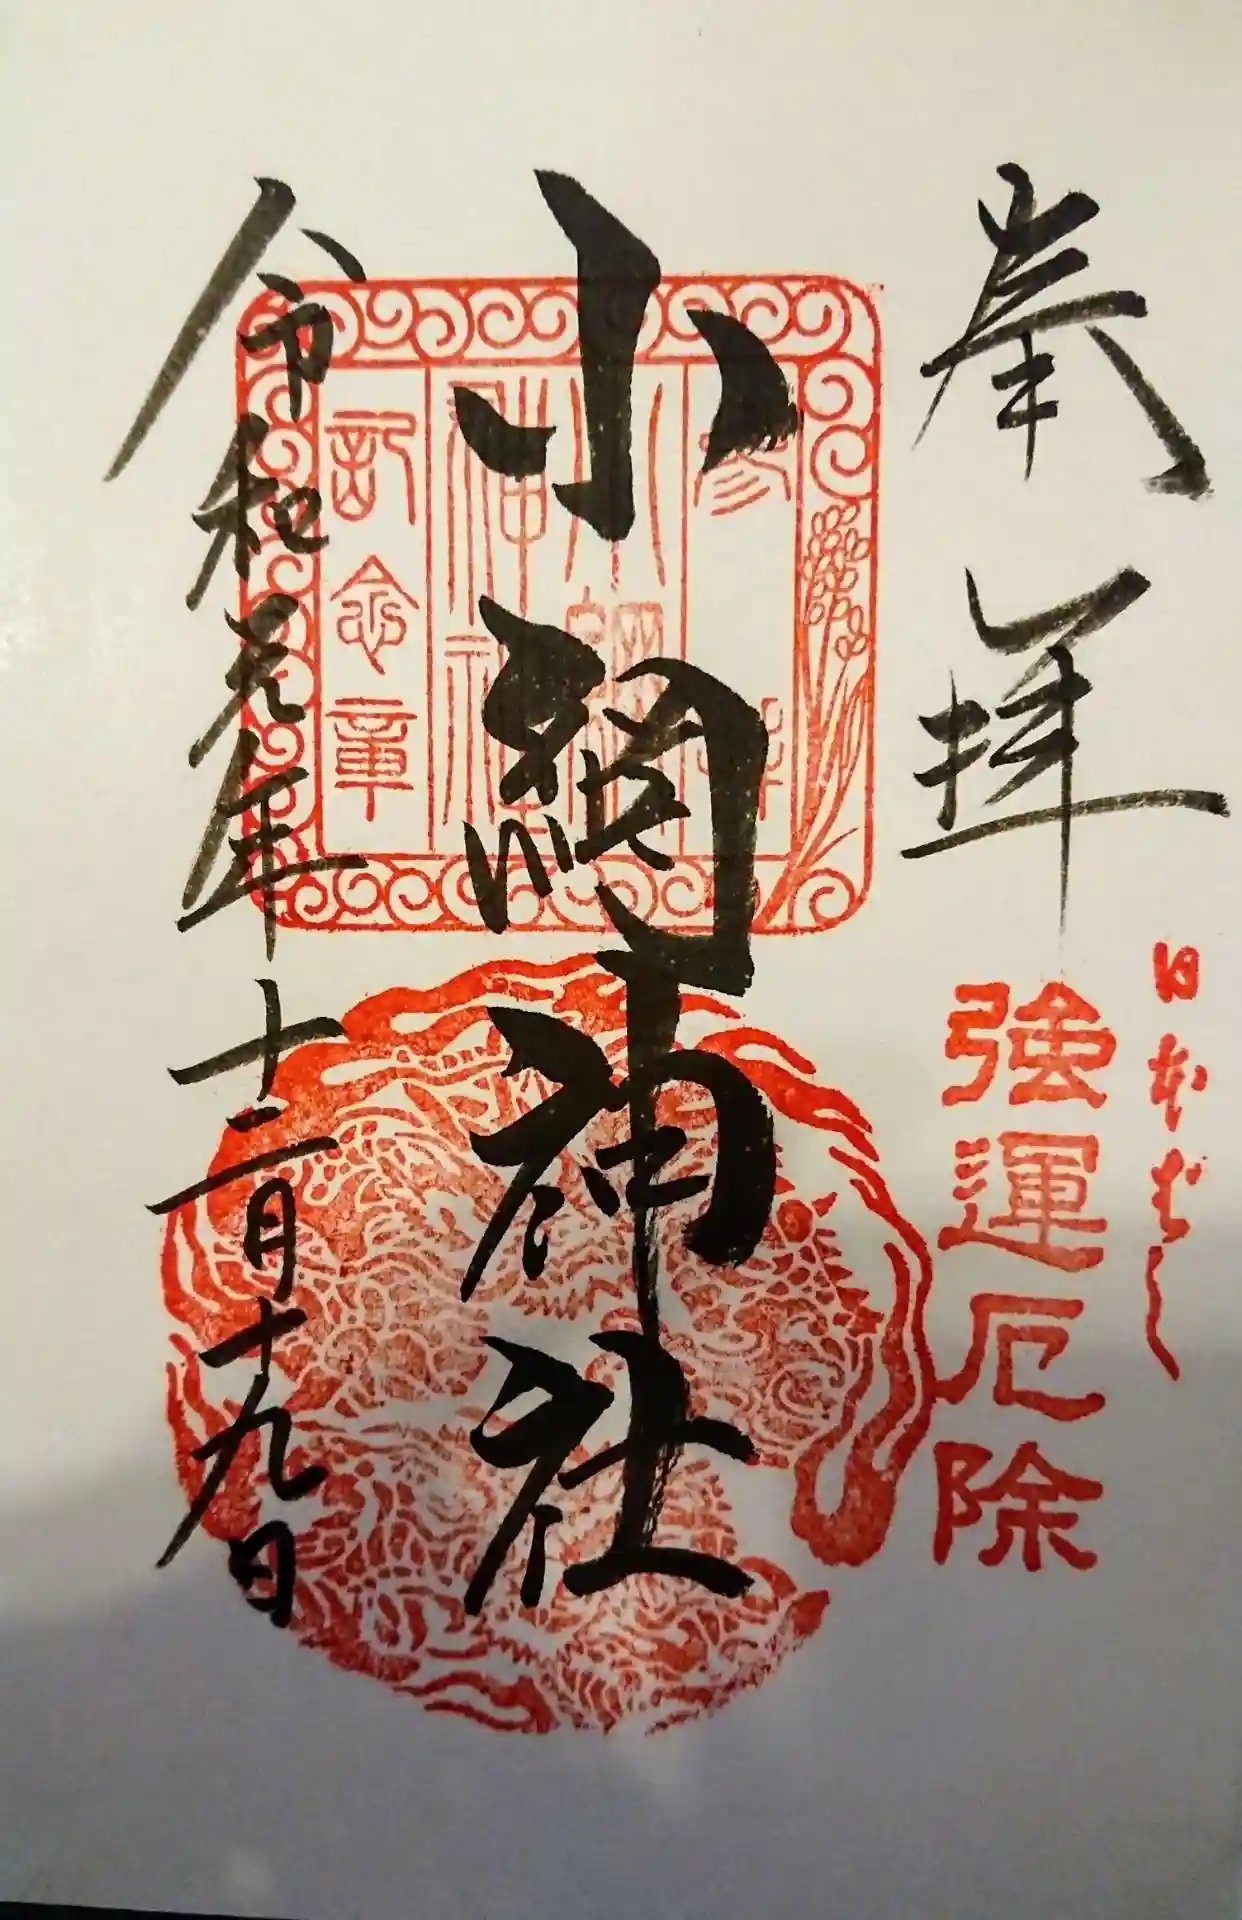 奉拝
日本橋
強運厄除
小網神社
参拝
小網神社
記念章
令和元年十二月十九日